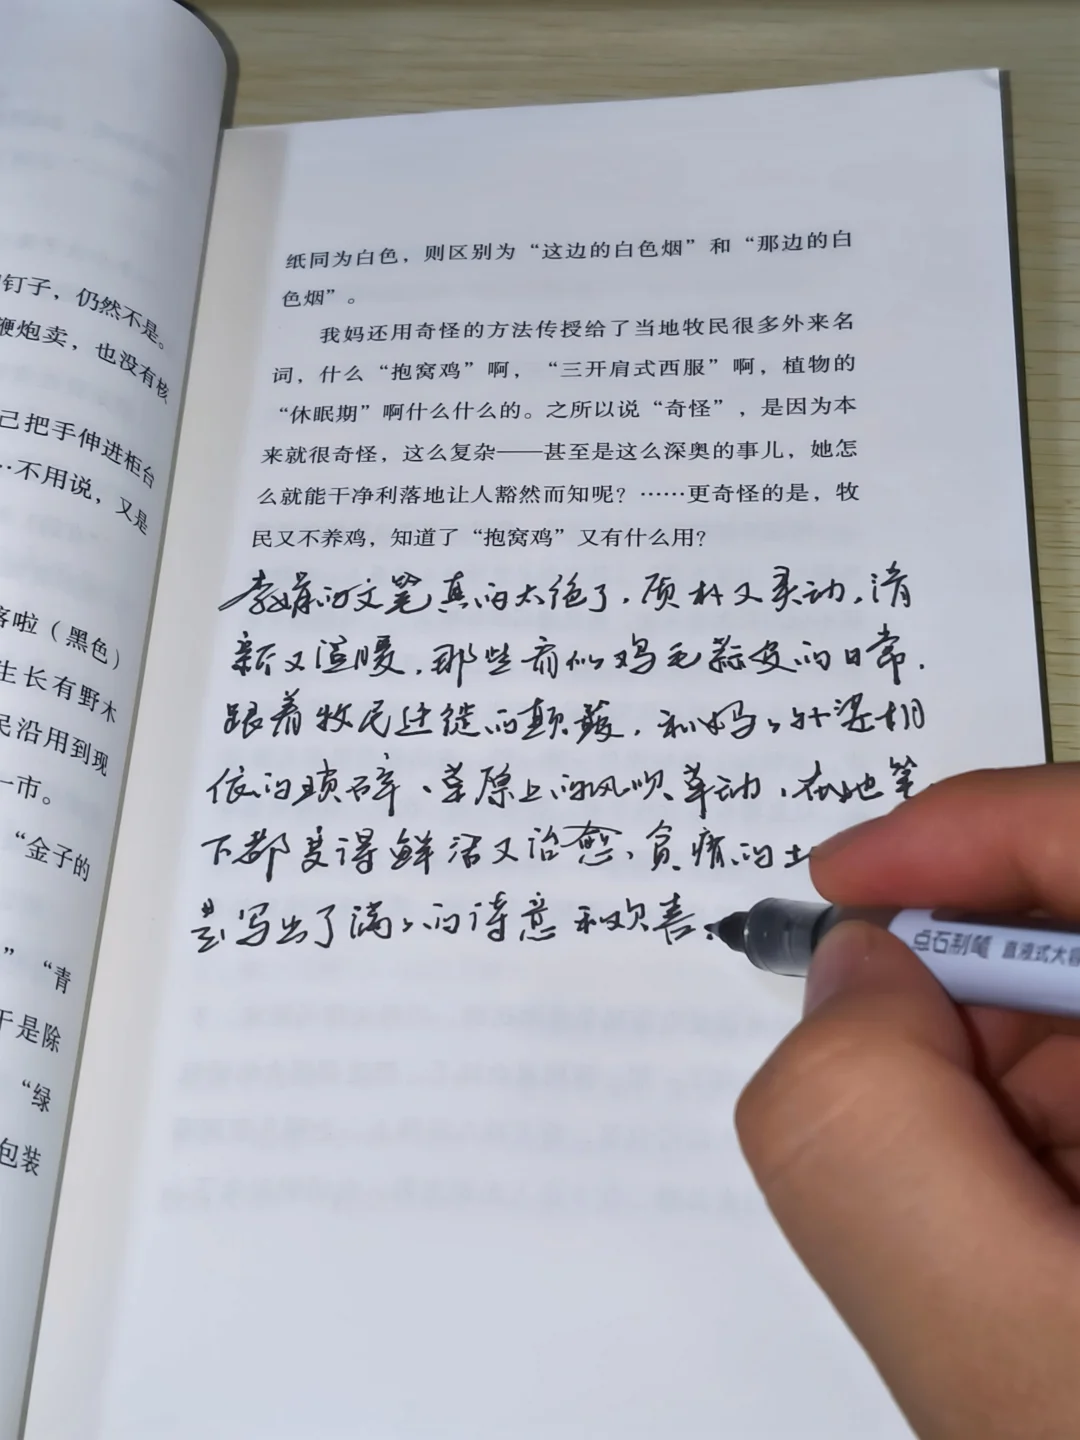 钉子，仍然不是。
鞭炮卖，也没有核
己把手伸进柜台
…不用说，又是
喀啦（黑色）
生长有野木
民沿用到现
一市。
“金子的
”“青
于是除
“绿
包装
纸同为白色，则区别为“这边的白色烟”和“那边的白
色烟”。
我妈还用奇怪的方法传授给了当地牧民很多外来名
词，什么“抱窝鸡”啊，“三开肩式西服”啊，植物的
“休眠期”啊什么什么的。之所以说“奇怪”，是因为本
来就很奇怪，这么复杂——甚至是这么深奥的事儿，她怎
么就能干净利落地让人豁然而知呢？……更奇怪的是，牧
民又不养鸡，知道了“抱窝鸡”又有什么用？
李娟的文笔真的太绝了，质朴又灵动，清
新又温暖，那些看似鸡毛蒜皮的日常，
跟着牧民迁徙的颠簸，和妈妈外婆相
依的琐碎、草原上的风吹草动，在她笔
下都变得鲜活又治愈，贫瘠的土
写出了满满的诗意和欢喜。
点石制笔 直液式大容